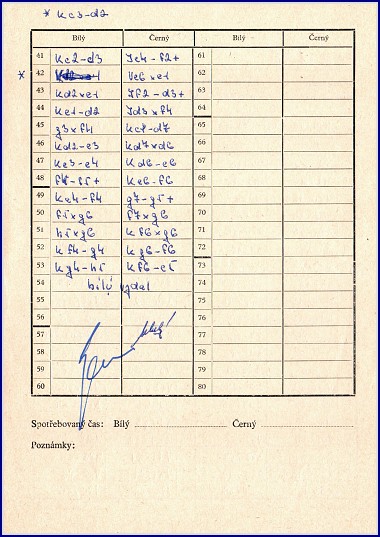 * Kc3-d2
Bílý Černý Bílý Černý
41 Kc2-d3 Je4-f2+ 61
* 42 Ve6xe1 62
43 Kd2xe1 Jf2-d3+ 63
44 Ke1-d2 Jd3xf4 64
45 g3xf4 Kc8-d7 65
46 Kd2-e3 Kd7xd6 66
47 Ke3-e4 Kd6-e6 67
48 f4-f5+ Ke6-f6 68
49 Ke4-f4 g7-g5+ 69
50 f5xg6 f7xg6 70
51 h5xg6 Kf6xg6 71
52 Kf4-g4 Kg6-f6 72
53 Kg4-h5 Kf6-e5 73
54 bílý vzdal 74
55 75
56 76
57 77
58 78
59 79
60 80
Spotřebovaný čas: Bílý Černý
Poznámky: